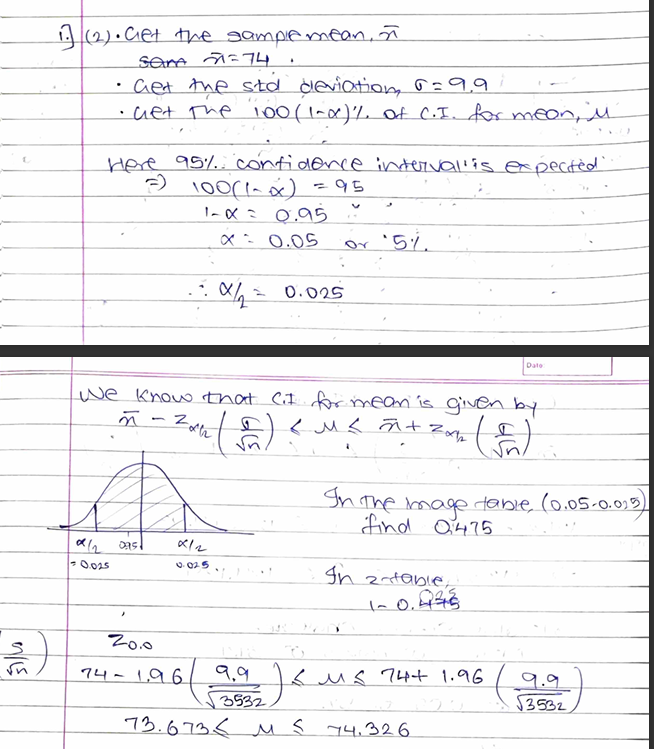 1.] (2). Get the sample mean, x̄
x̄ = 74 .
· Get the std deviation, σ = 9.9
· Get the 100(1-α)% of C.I. for mean, μ
Here 95% confidence interval is expected
⇒ 100(1-α) = 95
1-α = 0.95
α = 0.05 or 5%.
∴ α/2 = 0.025
Date
We know that C.I for mean is given by
x̄ - z α/2 (σ/√n) ≤ μ ≤ x̄ + z α/2 (σ/√n)
In the image table, (0.05-0.025)
find 0.475
α/2 0.95 α/2
= 0.025 0.025
In z-table,
1- 0.025
Z0.0
S/√n)
74 - 1.96 (9.9/√3532) ≤ μ ≤ 74 + 1.96 (9.9/√3532)
73.673 ≤ μ ≤ 74.326